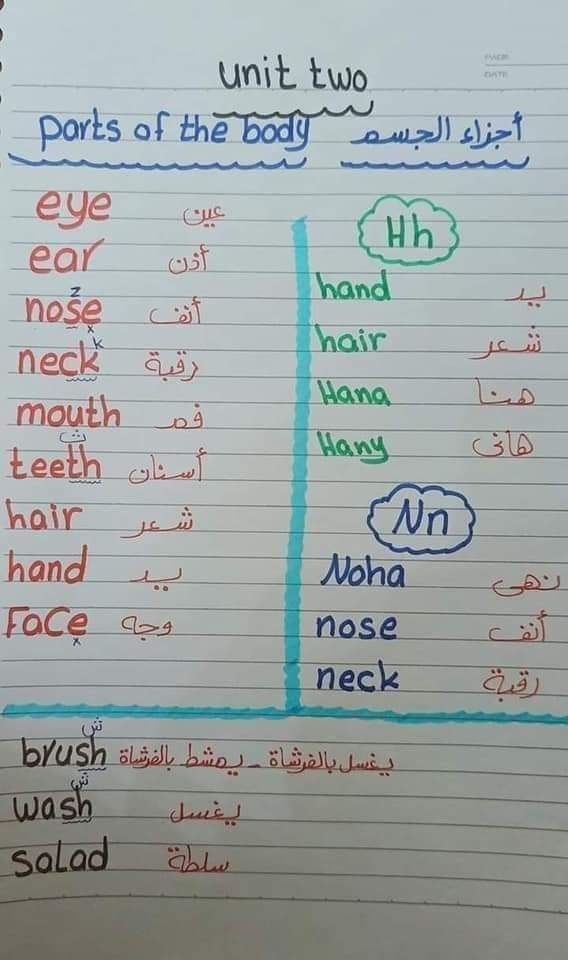 PAGE
DATE
unit two
parts of the body أجزاء الجسم
eye عين
ear أذن
z
nose أنف
x
k
neck رقبة
mouth فم
ث
teeth أسنان
hair شعر
hand يد
Face وجه
x
Hh
hand يد
hair شعر
Hana هنا
Hany هانى
Nn
Noha نهى
nose أنف
neck رقبة
ش
brush يغسل بالفرشاة - يمشط بالفرشاة
ش
wash يغسل
salad سلطة